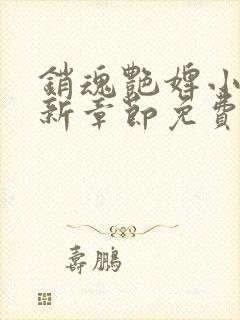 銷魂艷婢小
新章節免費
壽鵬